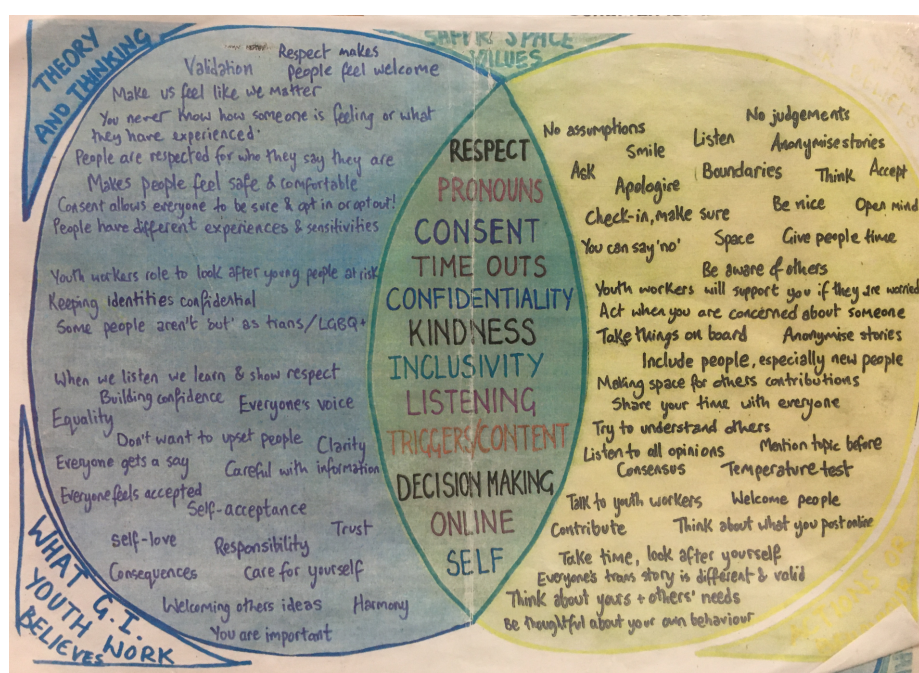 THEORY
AND THINKING
SAFER SPACE
VALUES
Validation
Respect makes
people feel welcome
Make us feel like we matter
You never know how someone is feeling or what
they have experienced.
People are respected for who they say they are
Makes people feel safe & comfortable
Consent allows everyone to be sure & opt in or opt out!
People have different experiences & sensitivities
Youth workers role to look after young people at risk
Keeping identities confidential
Some people aren't 'out' as trans/LGBQ+
When we listen we learn & show respect
Building confidence
Everyone's voice
Equality
Don't want to upset people
Clarity
Everyone gets a say
Careful with information
Everyone feels accepted
Self-acceptance
Trust
Self-love
Responsibility
Consequences
Care for yourself
Welcoming others ideas
Harmony
You are important
WHAT G.I.
YOUTH WORK
BELIEVES
RESPECT
PRONOUNS
CONSENT
TIME OUTS
CONFIDENTIALITY
KINDNESS
INCLUSIVITY
LISTENING
TRIGGERS/CONTENT
DECISION MAKING
ONLINE
SELF
No judgements
No assumptions
Smile
Listen
Anonymise stories
Ask
Apologise
Boundaries
Think
Accept
Check-in, make sure
Be nice
Open mind
You can say 'no'
Space
Give people time
Be aware of others
Youth workers will support you if they are worried
Act when you are concerned about someone
Take things on board
Anonymise stories
Include people, especially new people
Making space for others contributions
Share your time with everyone
Try to understand others
Listen to all opinions
Mention topic before
Consensus
Temperature test
Talk to youth workers
Welcome people
Contribute
Think about what you post online
Take time, look after yourself
Everyone's trans story is different & valid
Think about yours + others' needs
Be thoughtful about your own behaviour